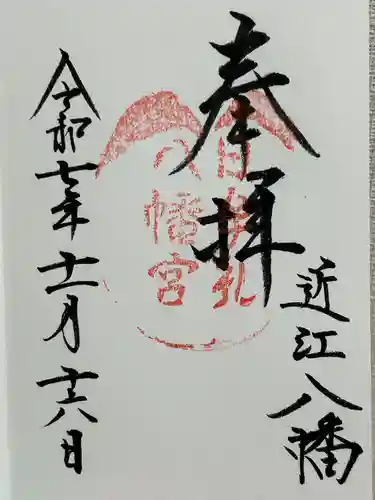 奉拝
近江八幡
日牟礼
八幡宮
令和七年十一月十六日